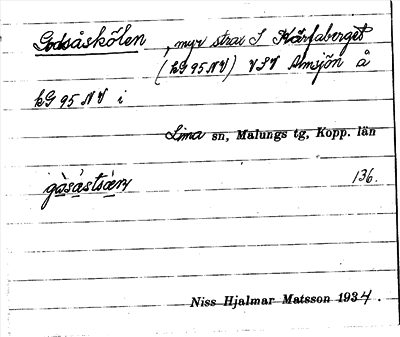 Godsåskölen, myr strax S Kärfaberget
(bG 95 NV) VSV Amsjön å
bG 95 NV i
Lima sn, Malungs tg, Kopp. län
136.
Niss Hjalmar Matsson 1934.